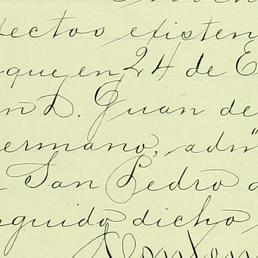 fectos existen
que en 24 de E
ñ D. Juan de
ermano, adm
San Pedro d
guido dicho